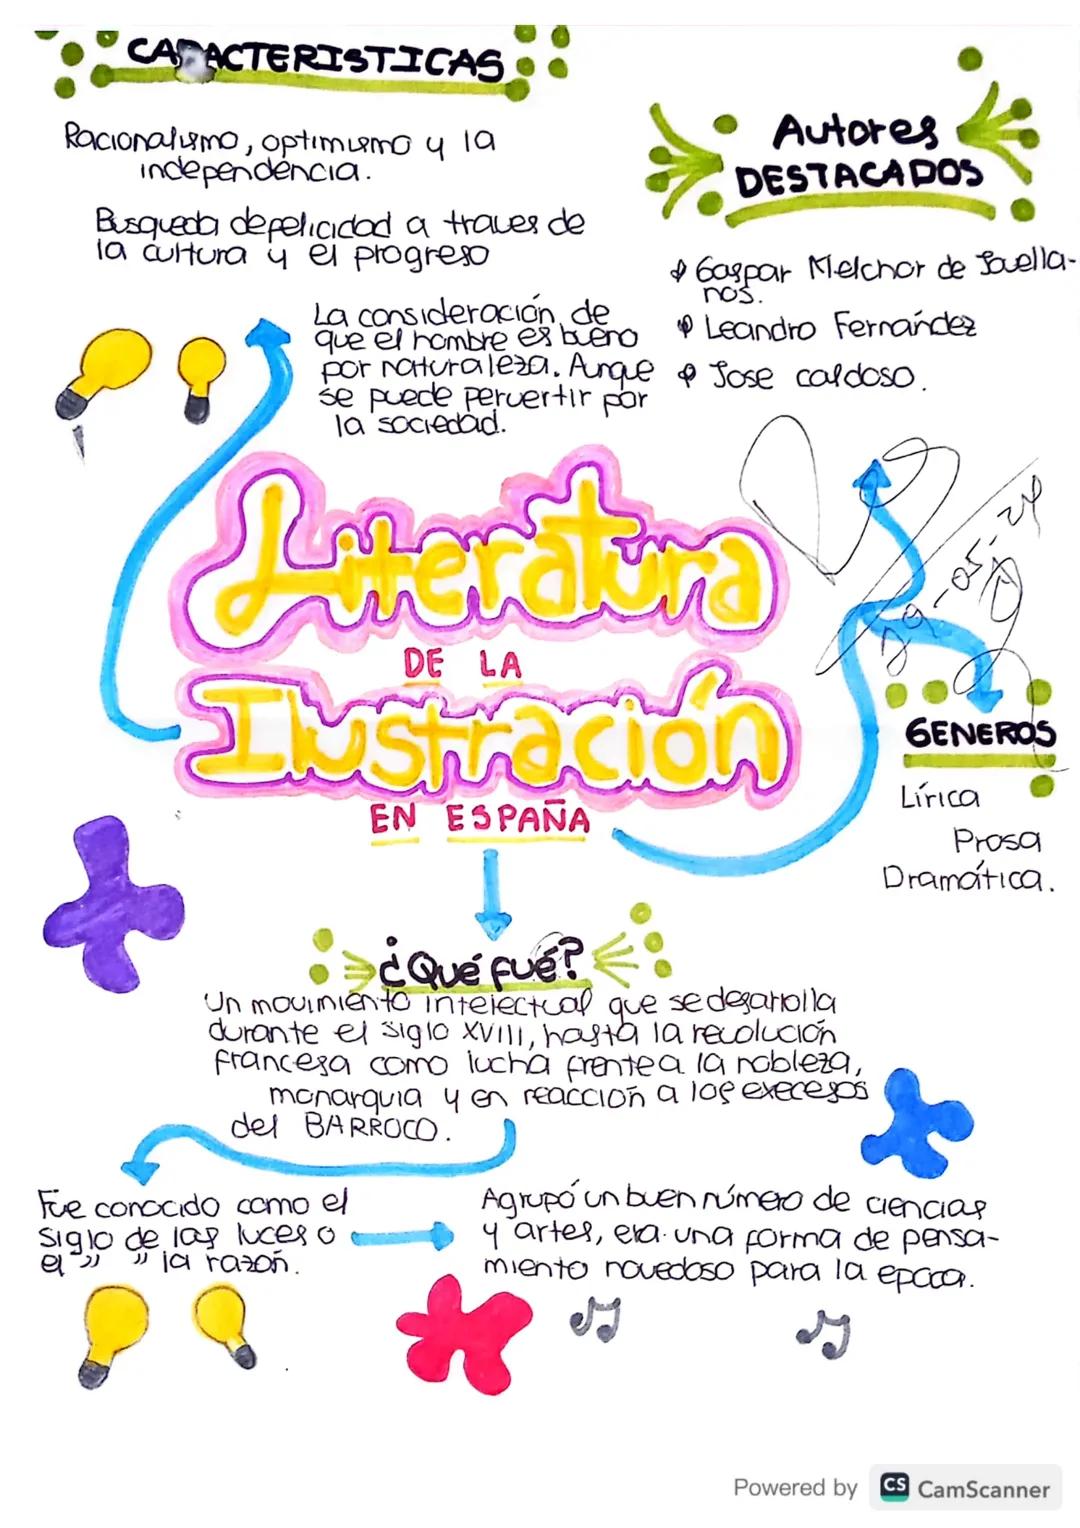 CARACTERISTICAS
Racionalismo, optimismo y la
independencia.
Busqueda de pelicidad a traves de
la cultura y el progreso
La consideración de
que el hombre es bueno
por naturaleza. Aunque
se puede pervertir por
la sociedad.
Autores
DESTACADOS
Gaspar Melchor de Jovella-
nos.
Leandro Fernández
Jose caldoso.
Literatura
DE LA
Ilustración
EN ESPAÑA
29-05-24
GENEROS
Lírica
Prosa
Dramática.
¿Qué fué?
Un movimiento intelectual que se desarrolla
durante el siglo XVIII, hasta la revolución
francesa como lucha frente a la nobleza,
monarquia y en reacción a los execesos
del BARROCO.
Fue conocido como el
siglo de las luces o
el " " la razón.
Agrupó un buen número de ciencias
y artes, era una forma de pensa-
miento novedoso para la epoca.
Powered by CS CamScanner